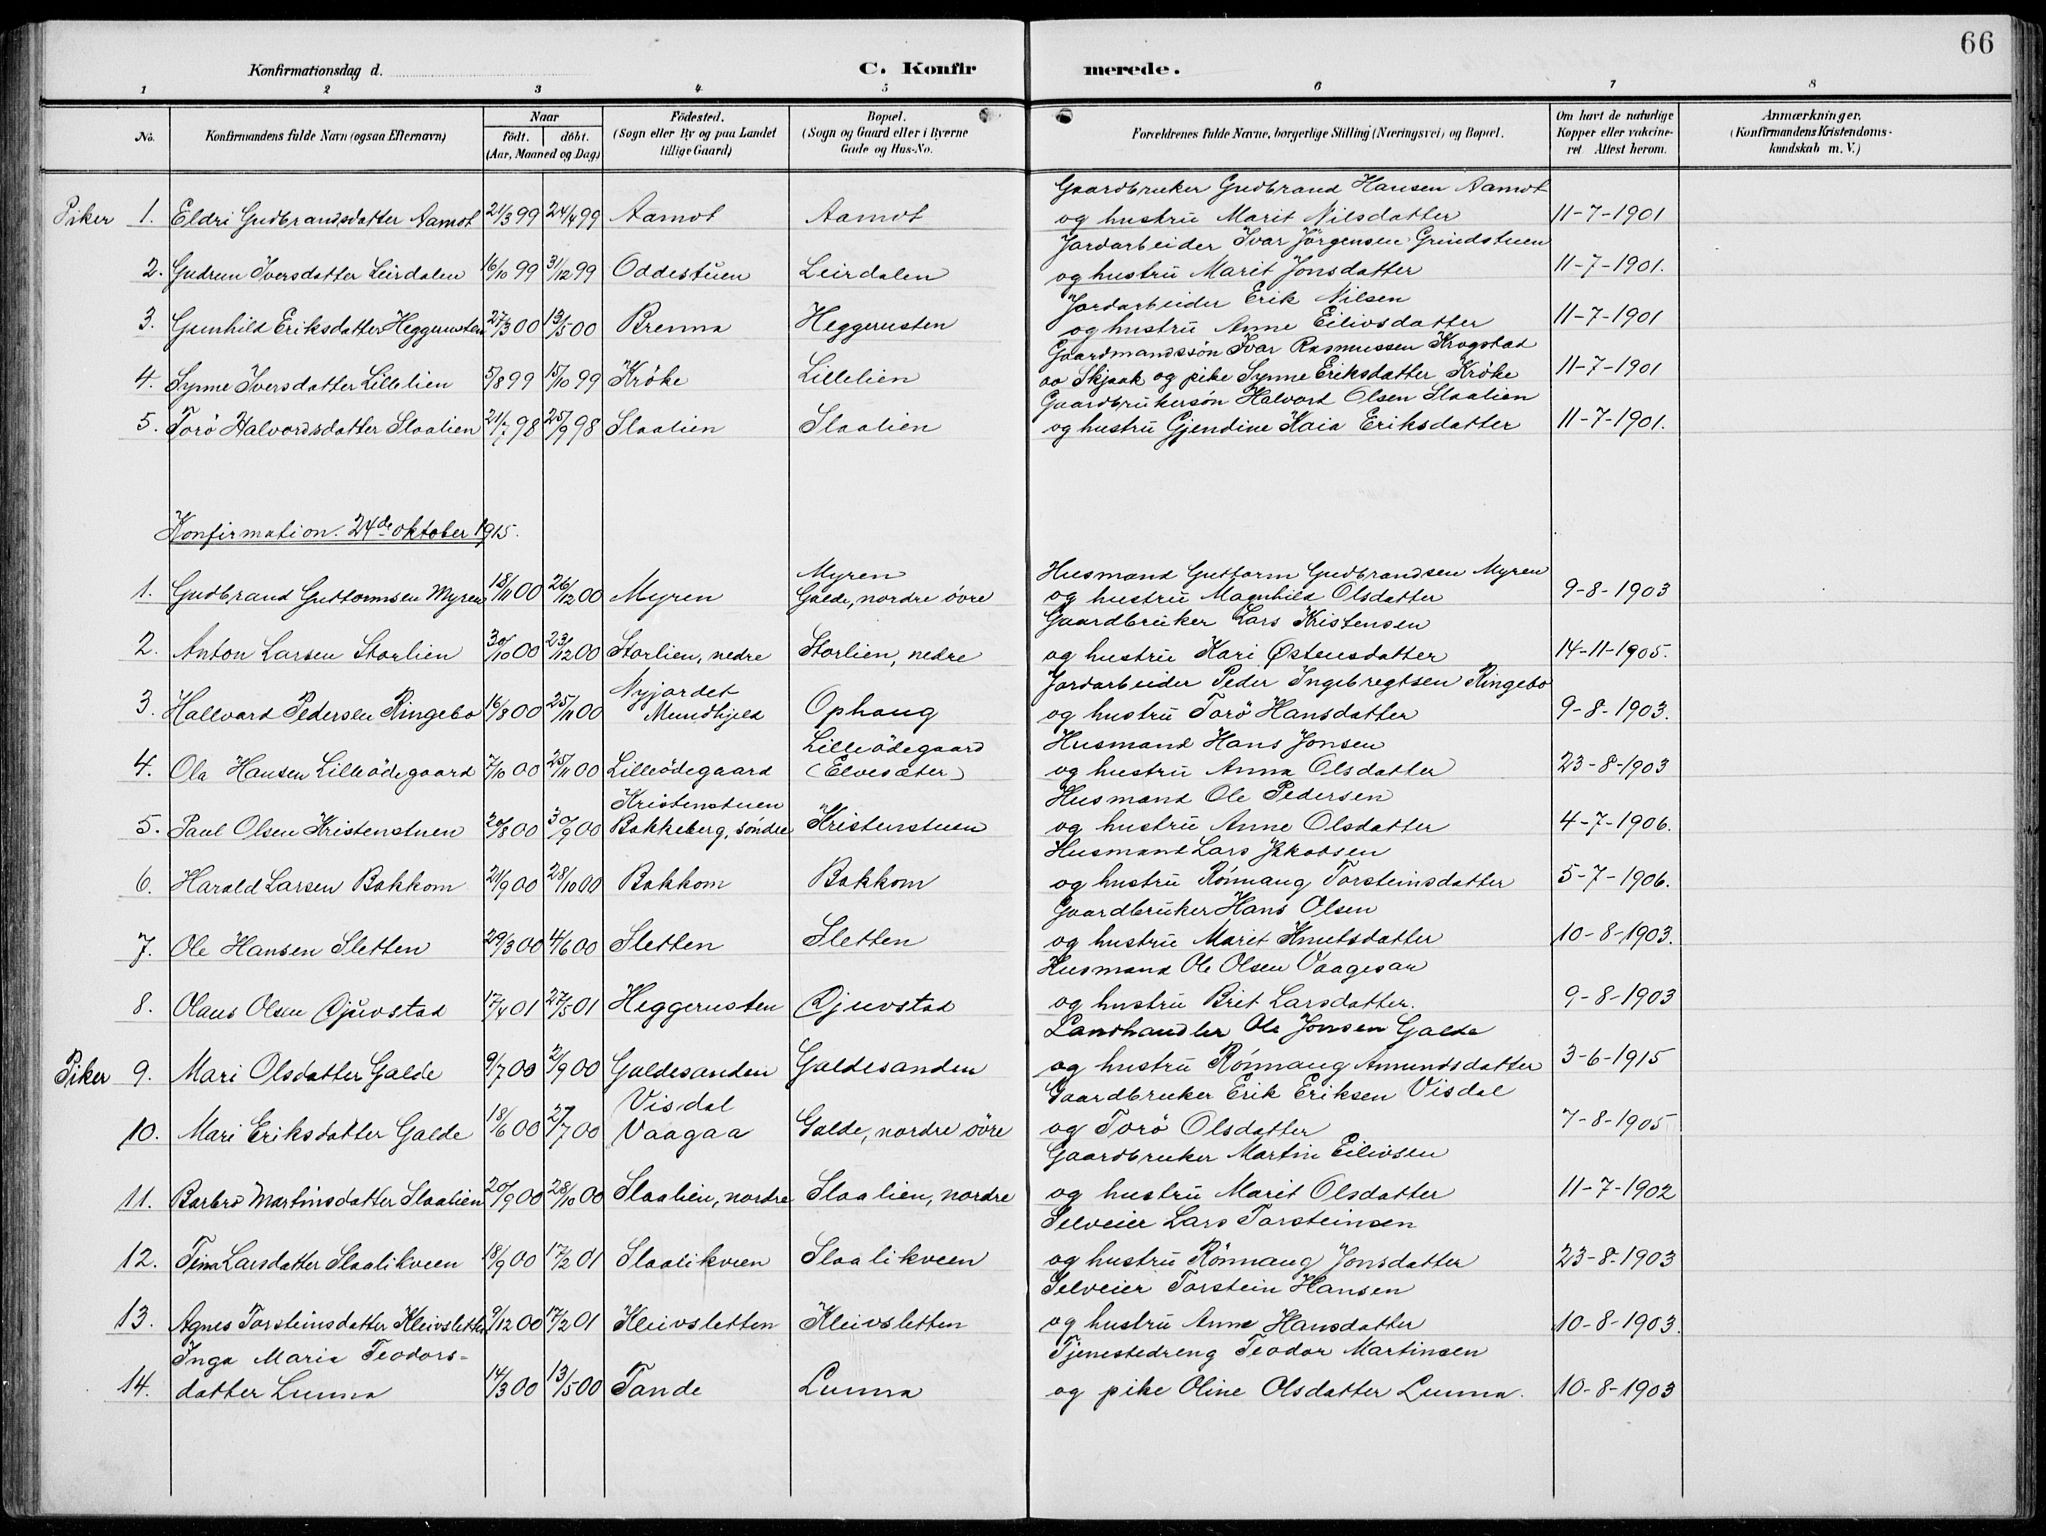 66
Konfirmationsdag d. C. Konfirmerede.
1 2 3 4 5 6 7 8
No. Konfirmandens fulde Navn (ogsaa Efternavn) Naar født. døbt. (Aar, Maaned og Dag) Fødested. (Sogn eller By og paa Landet tillige Gaard) Bopæl. (Sogn og Gaard eller i Byerne Gade og Hus-No. Forældrenes fulde Navne, borgerlige Stilling (Næringsvei) og Bopæl. Om havt de naturlige Kopper eller vakcineret Attest herom. Anmærkninger, (Konfirmandens Kristendomskundskab m. V.)
Gaardbruker Gudbrand Hansen Aamot
Piker 1. Eldri Gudbrandsdatter Aamot 21/3 99 24/4 99 Aamot Aamot og hustru Marit Nilsdatter 11-7-1901
Jordarbeider Ivar Jørgensen Grindstuen
2. Gudrun Iversdatter Leirdalen 16/10 99 31/12 99 Oddestuen Leirdalen og hustru Marit Jonsdatter 11-7-1901.
Jordarbeider Erik Nilsen
3. Gunhild Eriksdatter Heggerusten 27/3 00 13/5 00 Brenna Heggerusten og hustru Anne Eilivsdatter 11-7-1901
Gaardmandssøn Ivar Rasmussen Krogstad
4. Synne Iversdatter Lillelien 5/8 99 15/10 99 Krøke Lillelien av Skjaak og pike Synne Eriksdatter Krøke 11-7-1901
Gaardbrukersøn Halvord Olsen Slaalien
5. Torø Halvordsdatter Slaalien 21/7 98 25/9 98 Slaalien Slaalien og hustru Gjendine Kaia Eriksdatter 11-7-1901.
Konfirmation 24de oktober 1915.
Myren Husmand Guttorm Gudbrandsen Myren
1. Gudbrand Guttormsen Myren 18/11 00 26/12 00 Myren Galde, nordre øvre og hustru Magnhild Olsdatter 9-8-1903
Gaardbruker Lars Kristensen
2. Anton Larsen Storlien 30/10 00 23/12 00 Storlien, nedre Storlien, nedre og hustru Kari Østensdatter 14-11-1905.
Nyjordet Jordarbeider Peder Ingebregtsen Ringebo
3. Hallvard Pedersen Ringebo 16/8 00 25/11 00 Mundhjeld Ophaug og hustru Torø Hansdatter 9-8-1903.
Lilleødegaard Husmand Hans Jonsen
4. Ola Hansen Lilleødegaard 7/10 00 25/11 00 Lilleødegaard (Elvesæter) og hustru Anna Olsdatter 23-8-1903
Kristenstuen Husmand Ole Pedersen
5. Paul Olsen Kristenstuen 20/8 00 30/9 00 Bakkeberg, søndre Kristenstuen og hustru Anne Olsdatter 4-7-1906.
Husmand Lars Jakobsen
6. Harald Larsen Bakkom 21/9 00 28/10 00 Bakkom Bakkom og hustru Rønnaug Torsteinsdatter 5-7-1906.
Gaardbruker Hans Olsen
7. Ole Hansen Sletten 29/3 00 4/6 00 Sletten Sletten og hustru Marit Knutsdatter 10-8-1903.
Husmand Ole Olsen Vaagesar
8. Olaus Olsen Djuvstad 17/4 01 27/5 01 Heggerusten Djuvstad og hustru Brit Larsdatter. 9-8-1903
Landhandler Ole Jonsen Galde
Piker 9. Mari Olsdatter Galde 9/7 00 2/9 00 Galdesanden Galdesanden og hustru Rønnaug Amundsdatter 3-6-1915
Visdal Gaardbruker Erik Eriksen Visdal
10. Mari Eriksdatter Galde 18/6 00 2/7 00 Vaagaa Galde, nordre øvre og Torø Olsdatter 7-8-1905
Gaardbruker Martin Eilivsen
11. Barbro Martinsdatter Slaalien 20/9 00 28/10 00 Slaalien, nordre Slaalien, nordre og hustru Marit Olsdatter 11-7-1902
Selveier Lars Torsteinsen
12. Tina Larsdatter Slaalikveen 18/9 00 17/2 01 Slaalikveen Slaalikveen og hustru Rønnaug Jonsdatter 23-8-1903
Selveier Torstein Hansen
13. Agnes Torsteinsdatter Kleivsletten 9/12 00 17/2 01 Kleivsletten Kleivsletten og hustru Anne Hansdatter 10-8-1903.
Inga Maria Teodors- Tjenestedreng Teodor Martinsen
14. datter Lunna 14/3 00 13/5 00 Tande Lunna og pike Oline Olsdatter Lunna. 10-8-1903